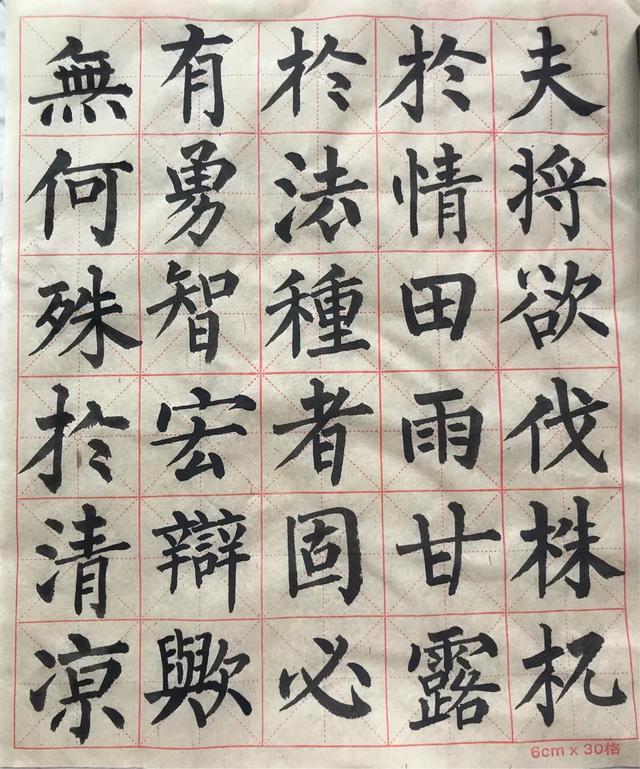 夫将欲伐株杌
於情田雨甘露
於法種者固必
有勇智宏辯歟
無何殊於清凉
6cm x 30格